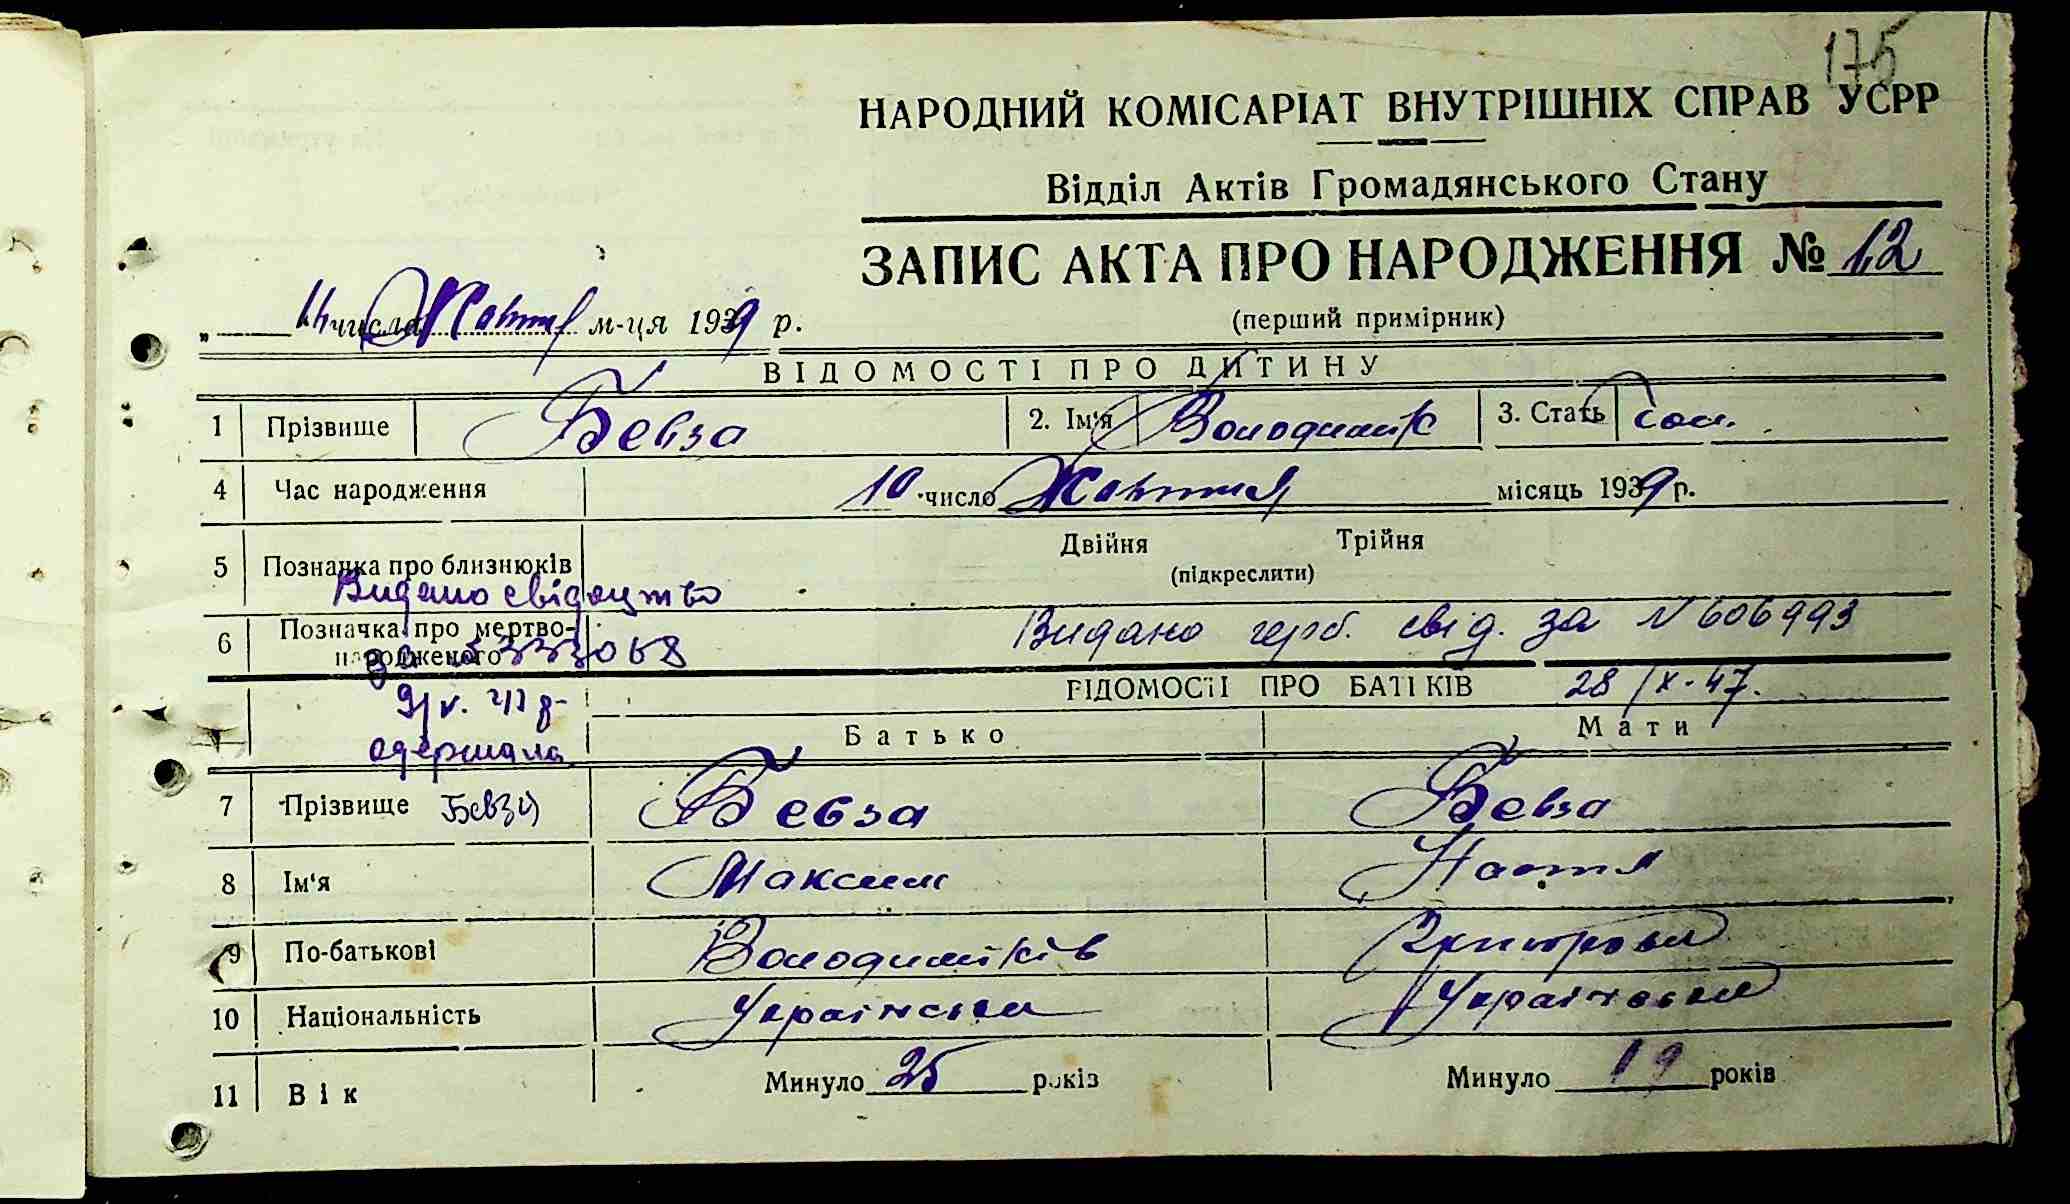 175
НАРОДНИЙ КОМІСАРІАТ ВНУТРІШНІХ СПРАВ УСРР
Відділ Актів Громадянського Стану
ЗАПИС АКТА ПРО НАРОДЖЕННЯ № 12
(перший примірник)
" 11 числа Жовтня м-ця 1939 р.
ВІДОМОСТІ ПРО ДИТИНУ
1 Прізвище Бевза 2. Ім'я Володимир 3. Стать чол.
4 Час народження 10 число Жовтня місяць 1939 р.
5 Позначка про близнюків Двійня Трійня
(підкреслити)
Видано свідоцтво
6 Позначка про мертвонародженого Видано герб. свід. за N 606993
за 333068
ВІДОМОСТІ ПРО БАТЬКІВ 28/X-47.
одержала
Батько Мати
7 Прізвище Бевза Бевза
8 Ім'я Максим Настя
9 По-батькові Володимирів Дмитровна
10 Національність Українська Українська
11 Вік Минуло 25 років Минуло 19 років